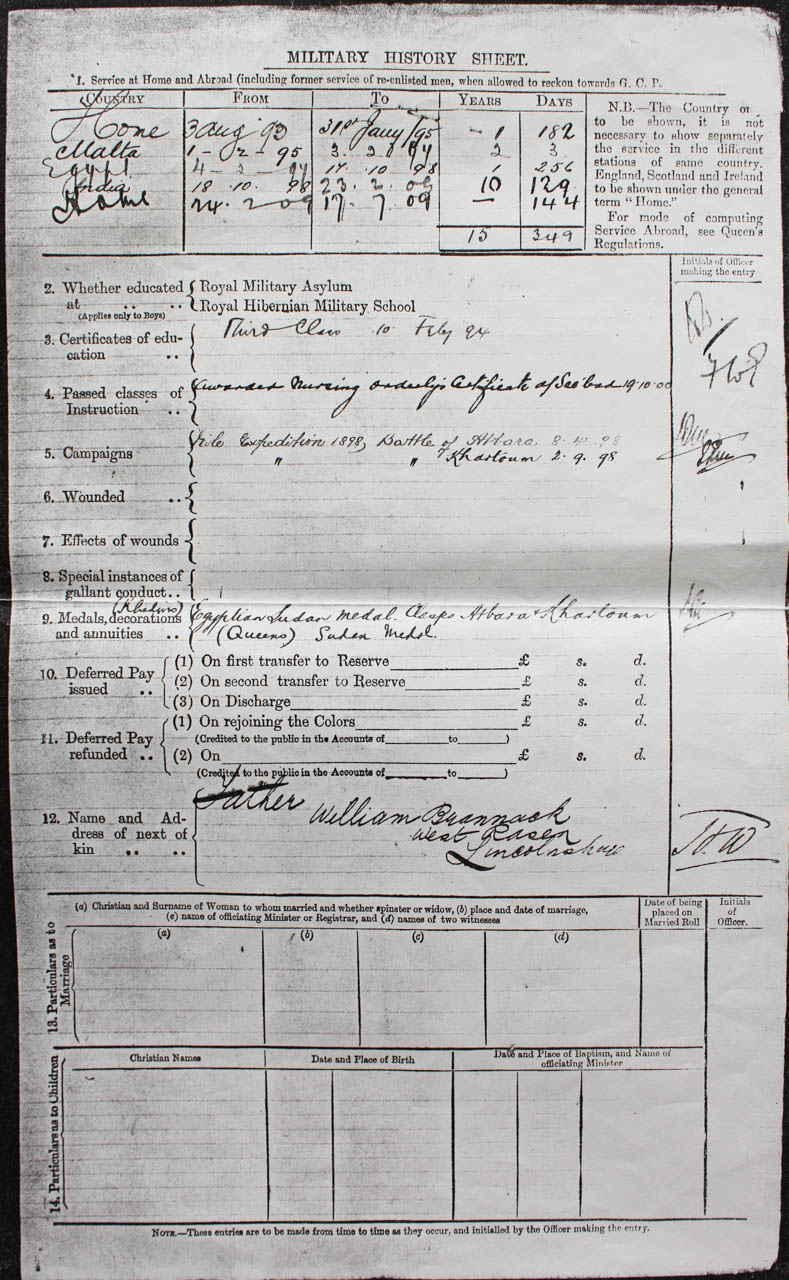 MILITARY HISTORY SHEET.
*1. Service at Home and Abroad (including former service of re-enlisted men, when allowed to reckon towards G. C. P.
COUNTRY FROM TO YEARS DAYS
Home 3 Aug 93 31st Jany/95 - 1 182
Malta 1 - 2 - 95 3. 2 2 3
Egypt 4 - 2 - 17. 10. 98 1 256
India 18. 10. 98 23. 2. 09 10 129
Home 24. 2 09 17. 7. 09 — 144
15 349
N.B.—The Country
to be shown, it is not
necessary to show separately
the service in the different
stations of same country.
England, Scotland and Ireland
to be shown under the general
term "Home."
For mode of computing
Service Abroad, see Queen's
Regulations.
Initials of Officer
making the entry
2. Whether educated
at .. ..
(Applies only to Boys)
Royal Military Asylum
Royal Hibernian Military School
3. Certificates of edu-
cation ..
Third Class 10 Feby 94
4. Passed classes of
Instruction ..
Awarded Nursing orderly's Certificate at 19.10.00
5. Campaigns
Nile Expedition 1898, Battle of Atbara 8. 4. 98
" " Khartoum 2. 9. 98
6. Wounded ..
7. Effects of wounds
8. Special instances of
gallant conduct..
9. Medals, decorations
and annuities ..
(Khedives)
Egyptian Sudan medal. Clasps Atbara & Khartoum
(Queens) Sudan Medal.
10. Deferred Pay
issued ..
(1) On first transfer to Reserve £ s. d.
(2) On second transfer to Reserve £ s. d.
(3) On Discharge £ s. d.
11. Deferred Pay
refunded ..
(1) On rejoining the Colors £ s. d.
(Credited to the public in the Accounts of to )
(2) On £ s. d.
(Credited to the public in the Accounts of to )
12. Name and Ad-
dress of next of
kin .. ..
Father
William Brannack
West Rasen
Lincolnshire
H.W
13. Particulars as to
Marriage
(a) Christian and Surname of Woman to whom married and whether spinster or widow, (b) place and date of marriage,
(c) name of officiating Minister or Registrar, and (d) names of two witnesses
Date of being
placed on
Married Roll
Initials
of
Officer.
(a) (b) (c) (d)
14. Particulars as to Children
Christian Names
Date and Place of Birth
Date and Place of Baptism, and Name of
officiating Minister
NOTE.—These entries are to be made from time to time as they occur, and initialled by the Officer making the entry.